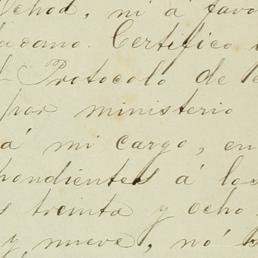 Ochod, ni á favo
lascano. Certifico
Protocolo de
por ministerio
á mi cargo, en
pondientes á los
s treinta y ocho
y nueve, nó